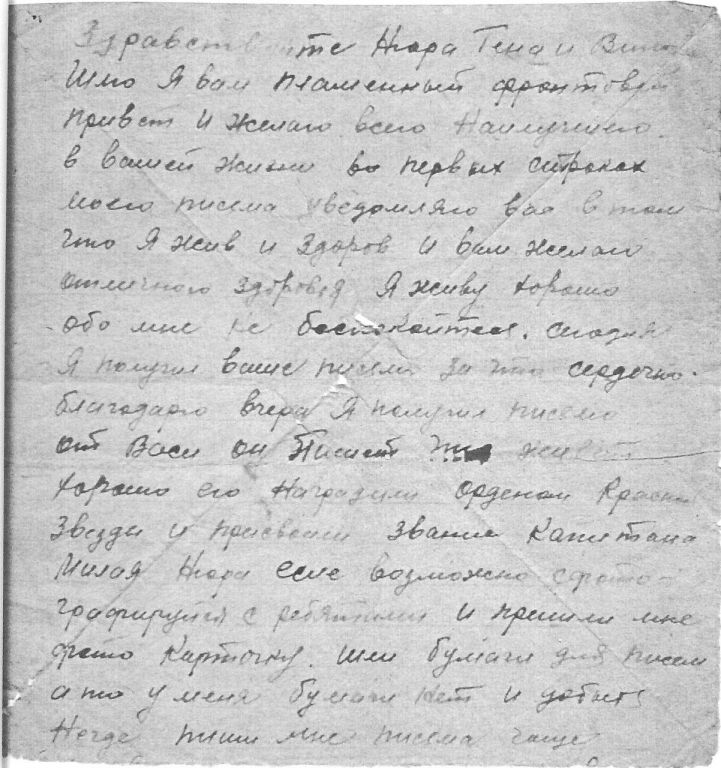 Здравствуйте Нюра Гена и
Шлю Я вам пламенный фронтовой
привет И желаю всего Наилучшего.
в вашей жизни во первых строках
моего писма уведомляю вас в том
что Я жив и здоров и вам желаю
отличного здоровья Я живу хорошо
обо мне не беспокойтесь. сегодня
Я получил ваше письмо за что сердечно.
благодарю вчера Я получил письмо
от Васи он Пишет живет
хорошо его Наградили Орденом Красной
Звезды и присвоили звание Капитана
Милая Нюра если возможно сфото-
графируйся с ребятами и пришли мне
фото Карточку. шли бумаги для писем
а то у меня бумаги нет и добыть
Негде пиши мне письма чаще